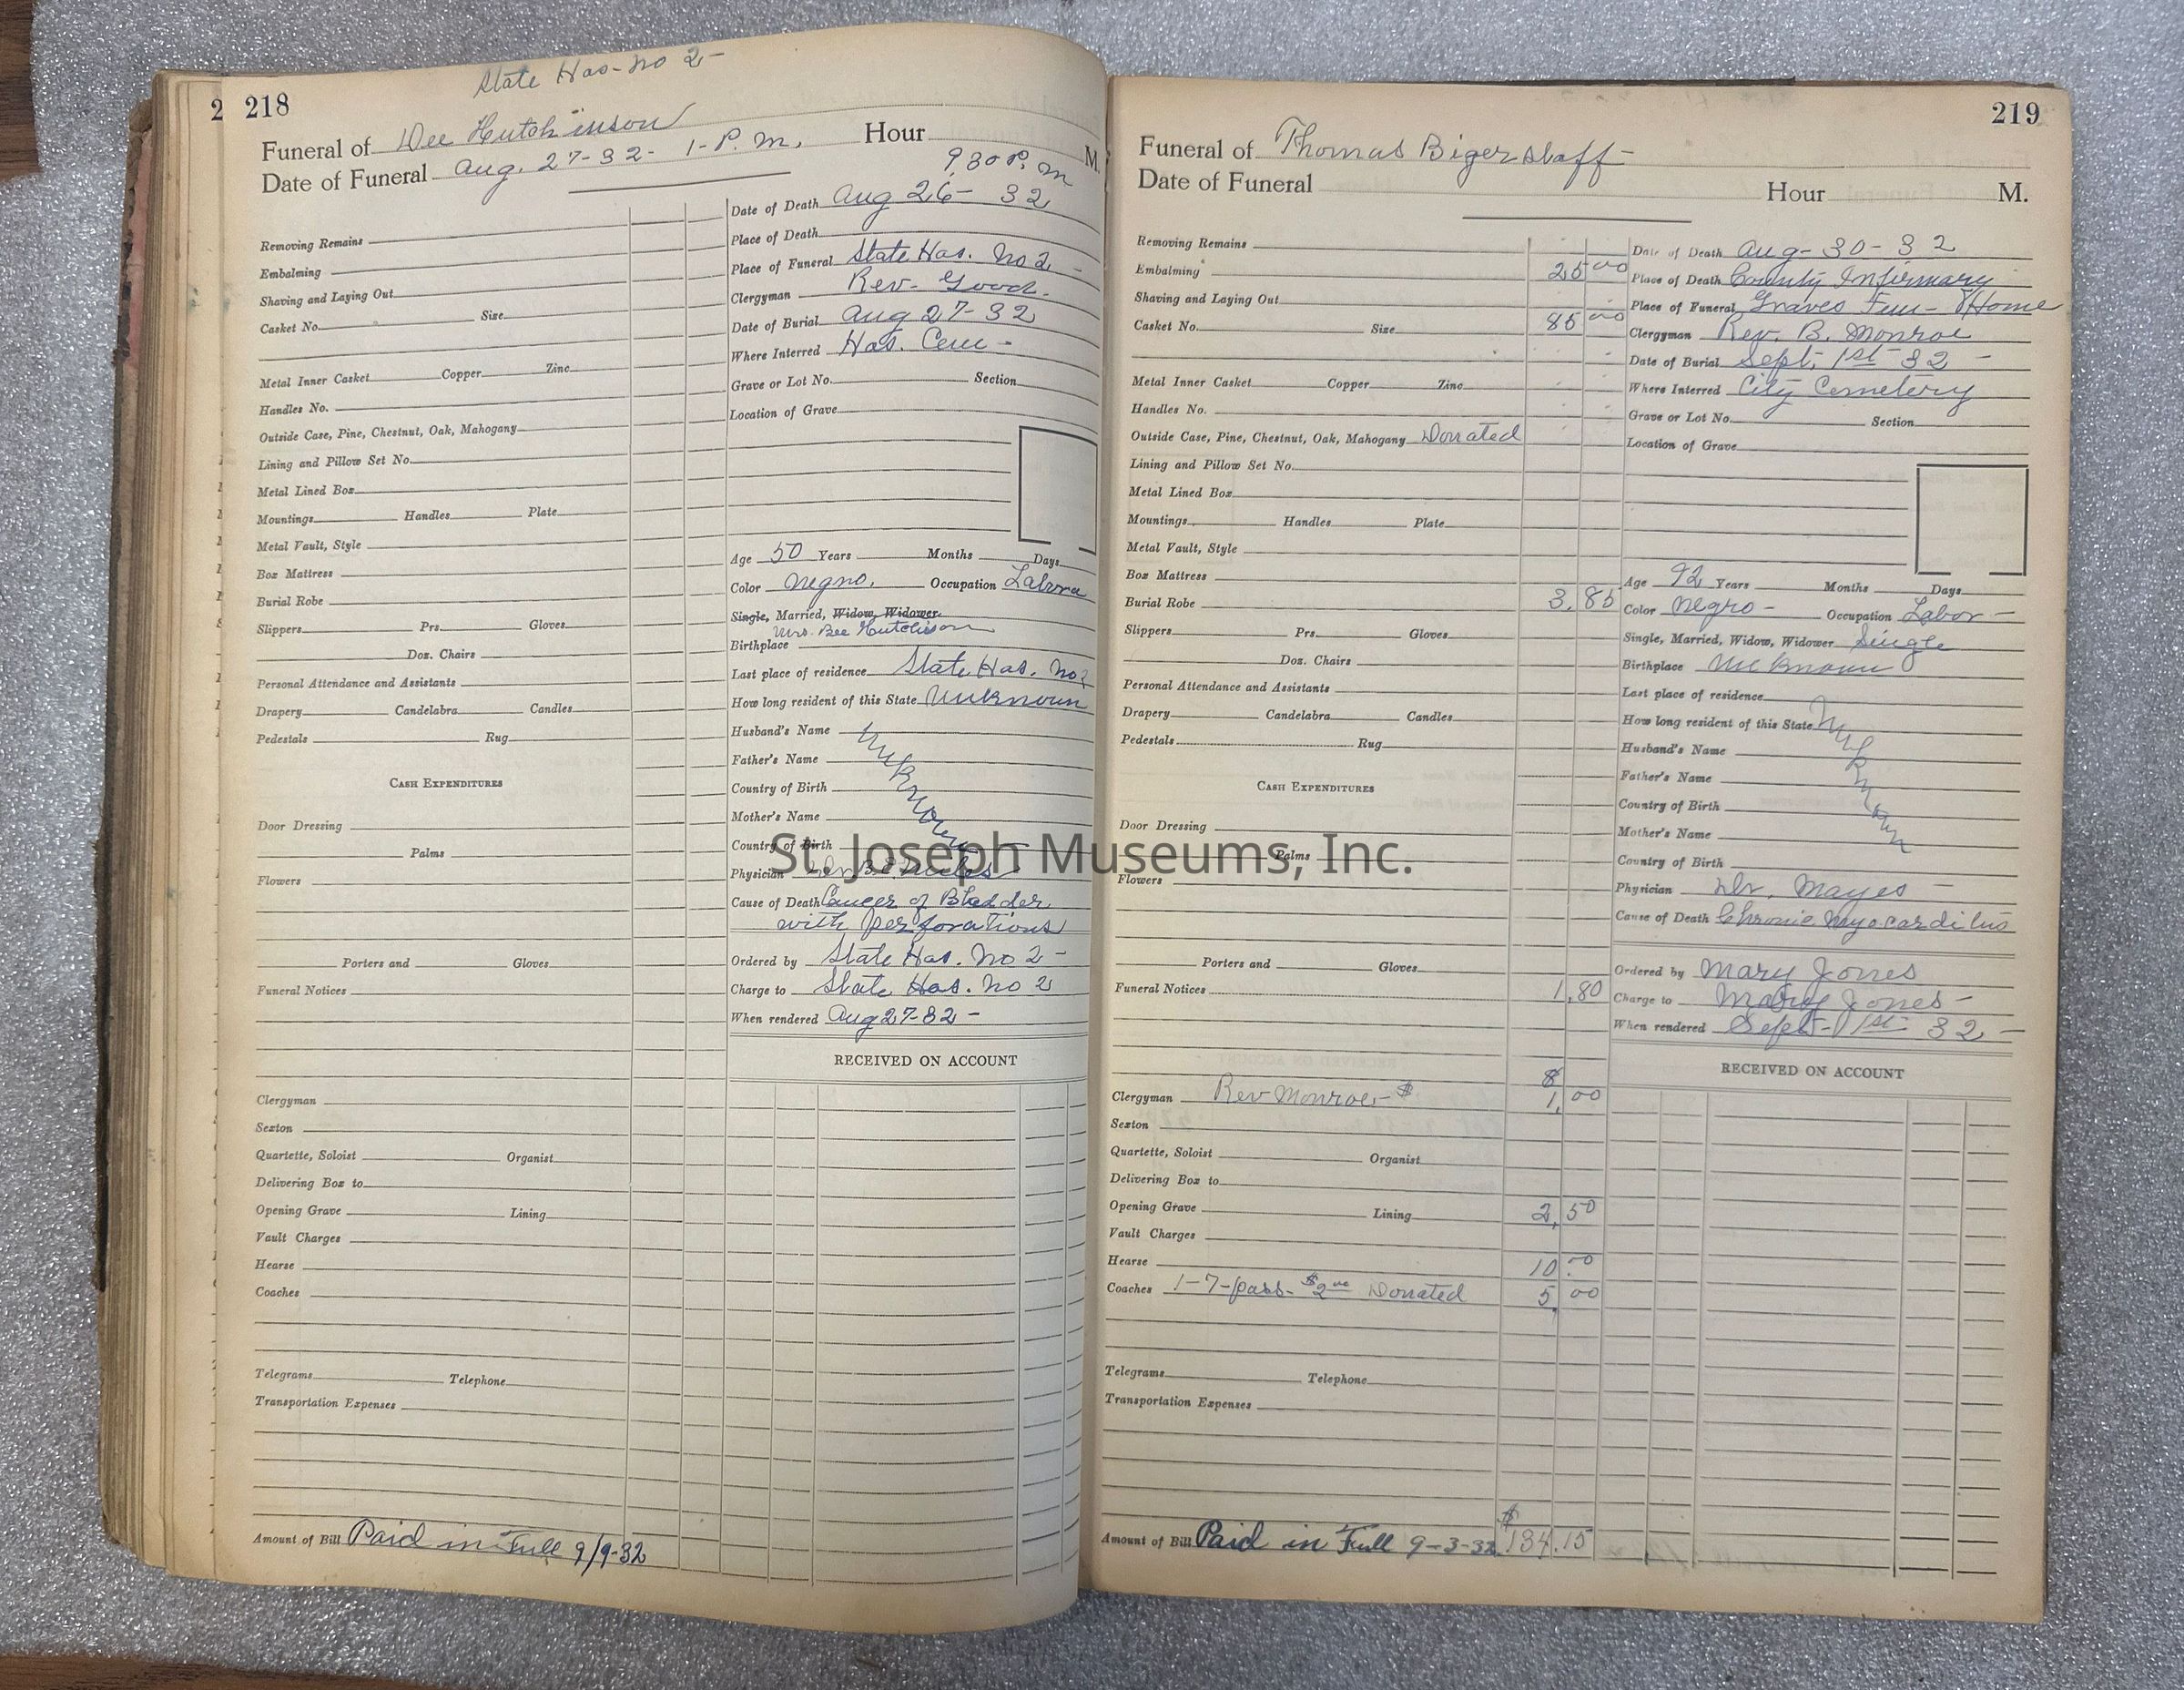 State Hos- no 2-
2 218
Funeral of Dee Hutchinson Hour M.
Date of Funeral Aug. 27-32- 1-P. m.
9,30 P. m
Removing Remains
Embalming
Shaving and Laying Out
Casket No. Size
Metal Inner Casket Copper Zinc
Handles No.
Outside Case, Pine, Chestnut, Oak, Mahogany
Lining and Pillow Set No.
Metal Lined Box
Mountings Handles Plate
Metal Vault, Style
Box Mattress
Burial Robe
Slippers Prs. Gloves
Doz. Chairs
Personal Attendance and Assistants
Drapery Candelabra Candles
Pedestals Rug
CASH EXPENDITURES
Door Dressing
Palms
Flowers
Porters and Gloves
Funeral Notices
Clergyman
Sexton
Quartette, Soloist Organist
Delivering Box to
Opening Grave Lining
Vault Charges
Hearse
Coaches
Telegrams Telephone
Transportation Expenses
Amount of Bill Paid in Full 9/9-32
Date of Death Aug 26- 32
Place of Death
Place of Funeral State Hos. No 2-
Clergyman Rev- Good-
Date of Burial Aug 27-32
Where Interred Hos. Cem-
Grave or Lot No. Section
Location of Grave
Age 50 Years Months Days
Color negro. Occupation Labora
Single, Married, Widow, Widower
Mrs. Bee Hutchison
Birthplace
Last place of residence State Hos. No 2
How long resident of this State Unknown
Husband's Name
Father's Name
Country of Birth
Mother's Name
Country of Birth
Unknown
Physician Dr B.E. Miles
Cause of Death Cancer of Bladder
with perforations
Ordered by State Hos. No 2-
Charge to State Hos. No 2
When rendered Aug 27-32-
RECEIVED ON ACCOUNT
219
Funeral of Thomas Bigerstaff-
Date of Funeral Hour M.
Removing Remains
Embalming 25 00
Shaving and Laying Out
Casket No. Size 85 00
Metal Inner Casket Copper Zinc
Handles No.
Outside Case, Pine, Chestnut, Oak, Mahogany Donated
Lining and Pillow Set No.
Metal Lined Box
Mountings Handles Plate
Metal Vault, Style
Box Mattress
Burial Robe 3, 85
Slippers Prs. Gloves
Doz. Chairs
Personal Attendance and Assistants
Drapery Candelabra Candles
Pedestals Rug
CASH EXPENDITURES
Door Dressing
Palms
Flowers
Porters and Gloves
Funeral Notices 1,80
$
Clergyman Rev Monroe-$ 1, 00
Sexton
Quartette, Soloist Organist
Delivering Box to
Opening Grave Lining 2, 50
Vault Charges
Hearse 10 00
Coaches 1-7-pass- $2 00 Donated 5, 00
Telegrams Telephone
Transportation Expenses
Amount of Bill Paid in Full 9-3-32 $134.15
Date of Death Aug-30-32
Place of Death County Infirmary
Place of Funeral Graves Fun- Home
Clergyman Rev. B. Monroe
Date of Burial Sept, 1st 32-
Where Interred City Cemetery
Grave or Lot No. Section
Location of Grave
Age 92 Years Months Days
Color negro- Occupation Labor-
Single, Married, Widow, Widower Single
Birthplace Unknown
Last place of residence
How long resident of this State
Husband's Name
Father's Name
Country of Birth
Mother's Name
Country of Birth
Unknown
Physician Dr. Mayes-
Cause of Death Chronic Myocarditus
Ordered by Mary Jones
Charge to Mary Jones-
When rendered Sept-1st 32-
RECEIVED ON ACCOUNT
St. Joseph Museums, Inc.